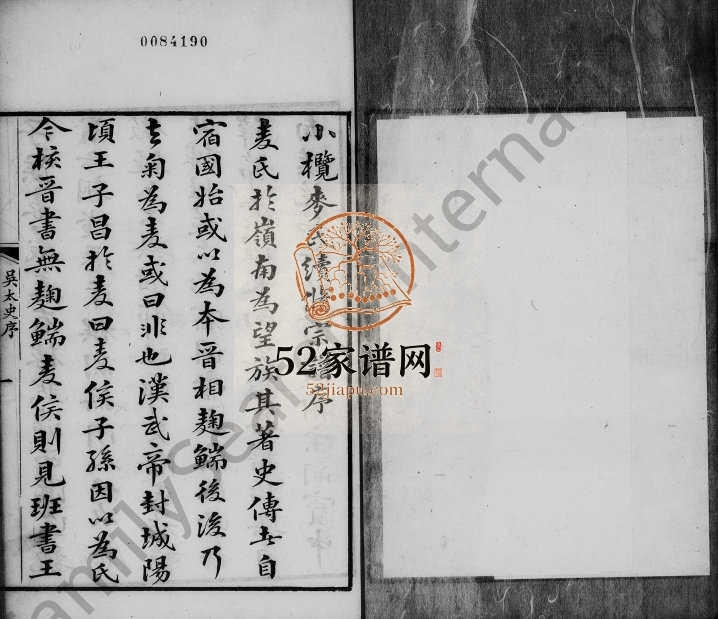 0084190
小欖麥氏續修宗譜序
麦氏於嶺南為望族其著史傳土自
宿國始或以為本晋相麹鳊後後乃
去匊為麦或曰非也漢武帝封城陽
頃王子昌於麦曰麦侯子孫因以為氏
今核晋書無麹鳊麦侯則見班書王
吳太史序
52家谱网
52jiapu.com
FamilySearch International